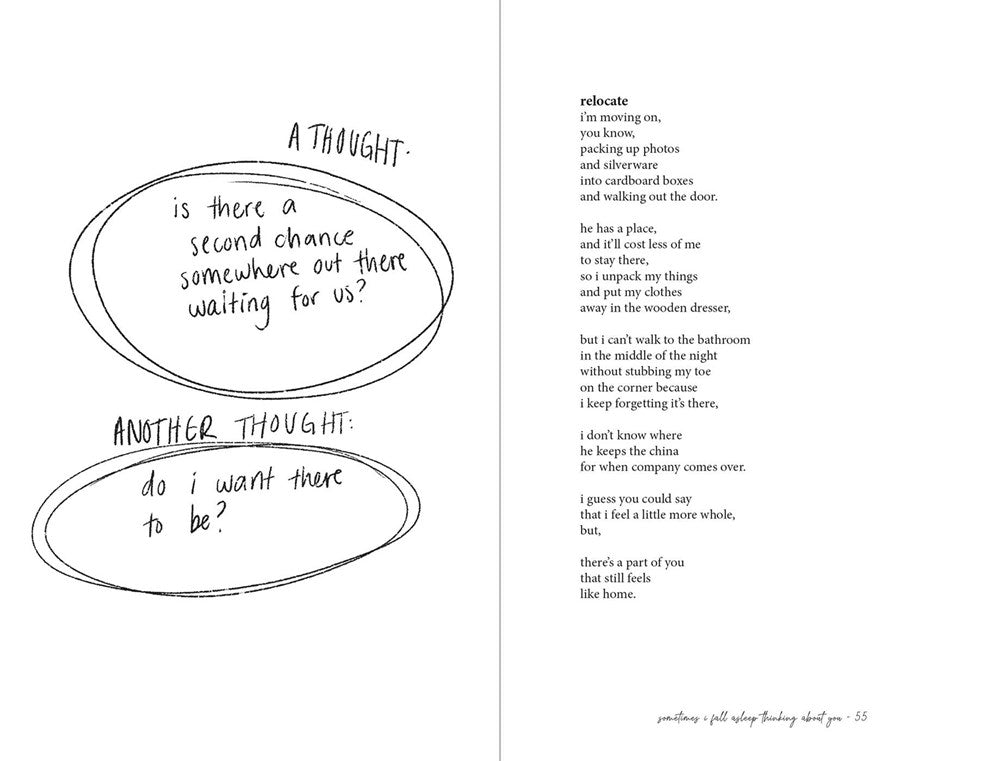 A THOUGHT.
is there a
second chance
somewhere out there
waiting for us?
ANOTHER THOUGHT:
do i want there
to be?
relocate
i'm moving on,
you know,
packing up photos
and silverware
into cardboard boxes
and walking out the door.
he has a place,
and it'll cost less of me
to stay there,
so i unpack my things
and put my clothes
away in the wooden dresser,
but i can't walk to the bathroom
in the middle of the night
without stubbing my toe
on the corner because
i keep forgetting it's there,
i don't know where
he keeps the china
for when company comes over.
i guess you could say
that i feel a little more whole,
but,
there's a part of you
that still feels
like home.
sometimes i fall asleep thinking about you - 55